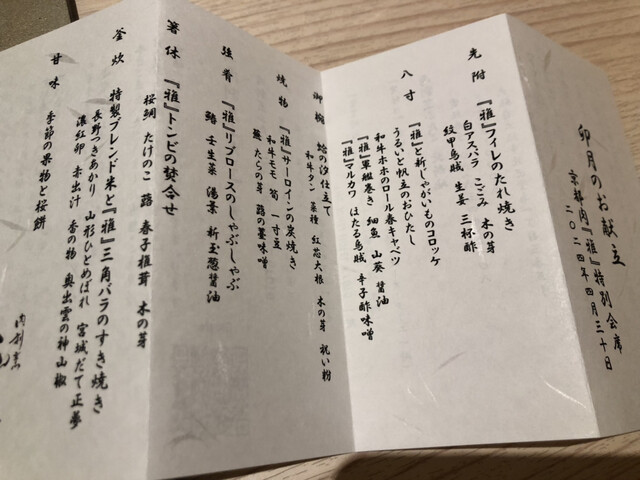 卯月のお献立
京都肉『雅』特別会席
二〇二四年四月三十日
先附
『雅』フィレのたれ焼き
白アスパラ こごみ 木の芽
紋甲烏賊 生姜 三杯酢
八寸
『雅』と新じゃがいものコロッケ
うるいと帆立のおひたし
和牛ホホのロール春キャベツ
『雅』軍艦巻き 細魚 山葵 醤油
『雅』マルカワ ほたる烏賊 辛子酢味噌
御椀
蛤の汐仕立て
和牛タン 菜種 紅芯大根 木の芽 祝い粉
焼物
『雅』サーロインの炭焼き
和牛モモ 筍 一寸豆
蕪 たらの芽 蕗の薹味噌
強肴
『雅』リブロースのしゃぶしゃぶ
蕗 壬生菜 湯葉 新玉葱醤油
箸休
『雅』トンビの焚合せ
桜鯛 たけのこ 蕗 春子椎茸 木の芽
釜炊
特製ブレンド米と『雅』三角バラのすき焼き
長野つきあかり 山形ひとめぼれ 宮城だて正夢
濃紅卵 赤出汁 香の物 奥出雲の神山椒
甘味
季節の果物と桜餅
肉割烹